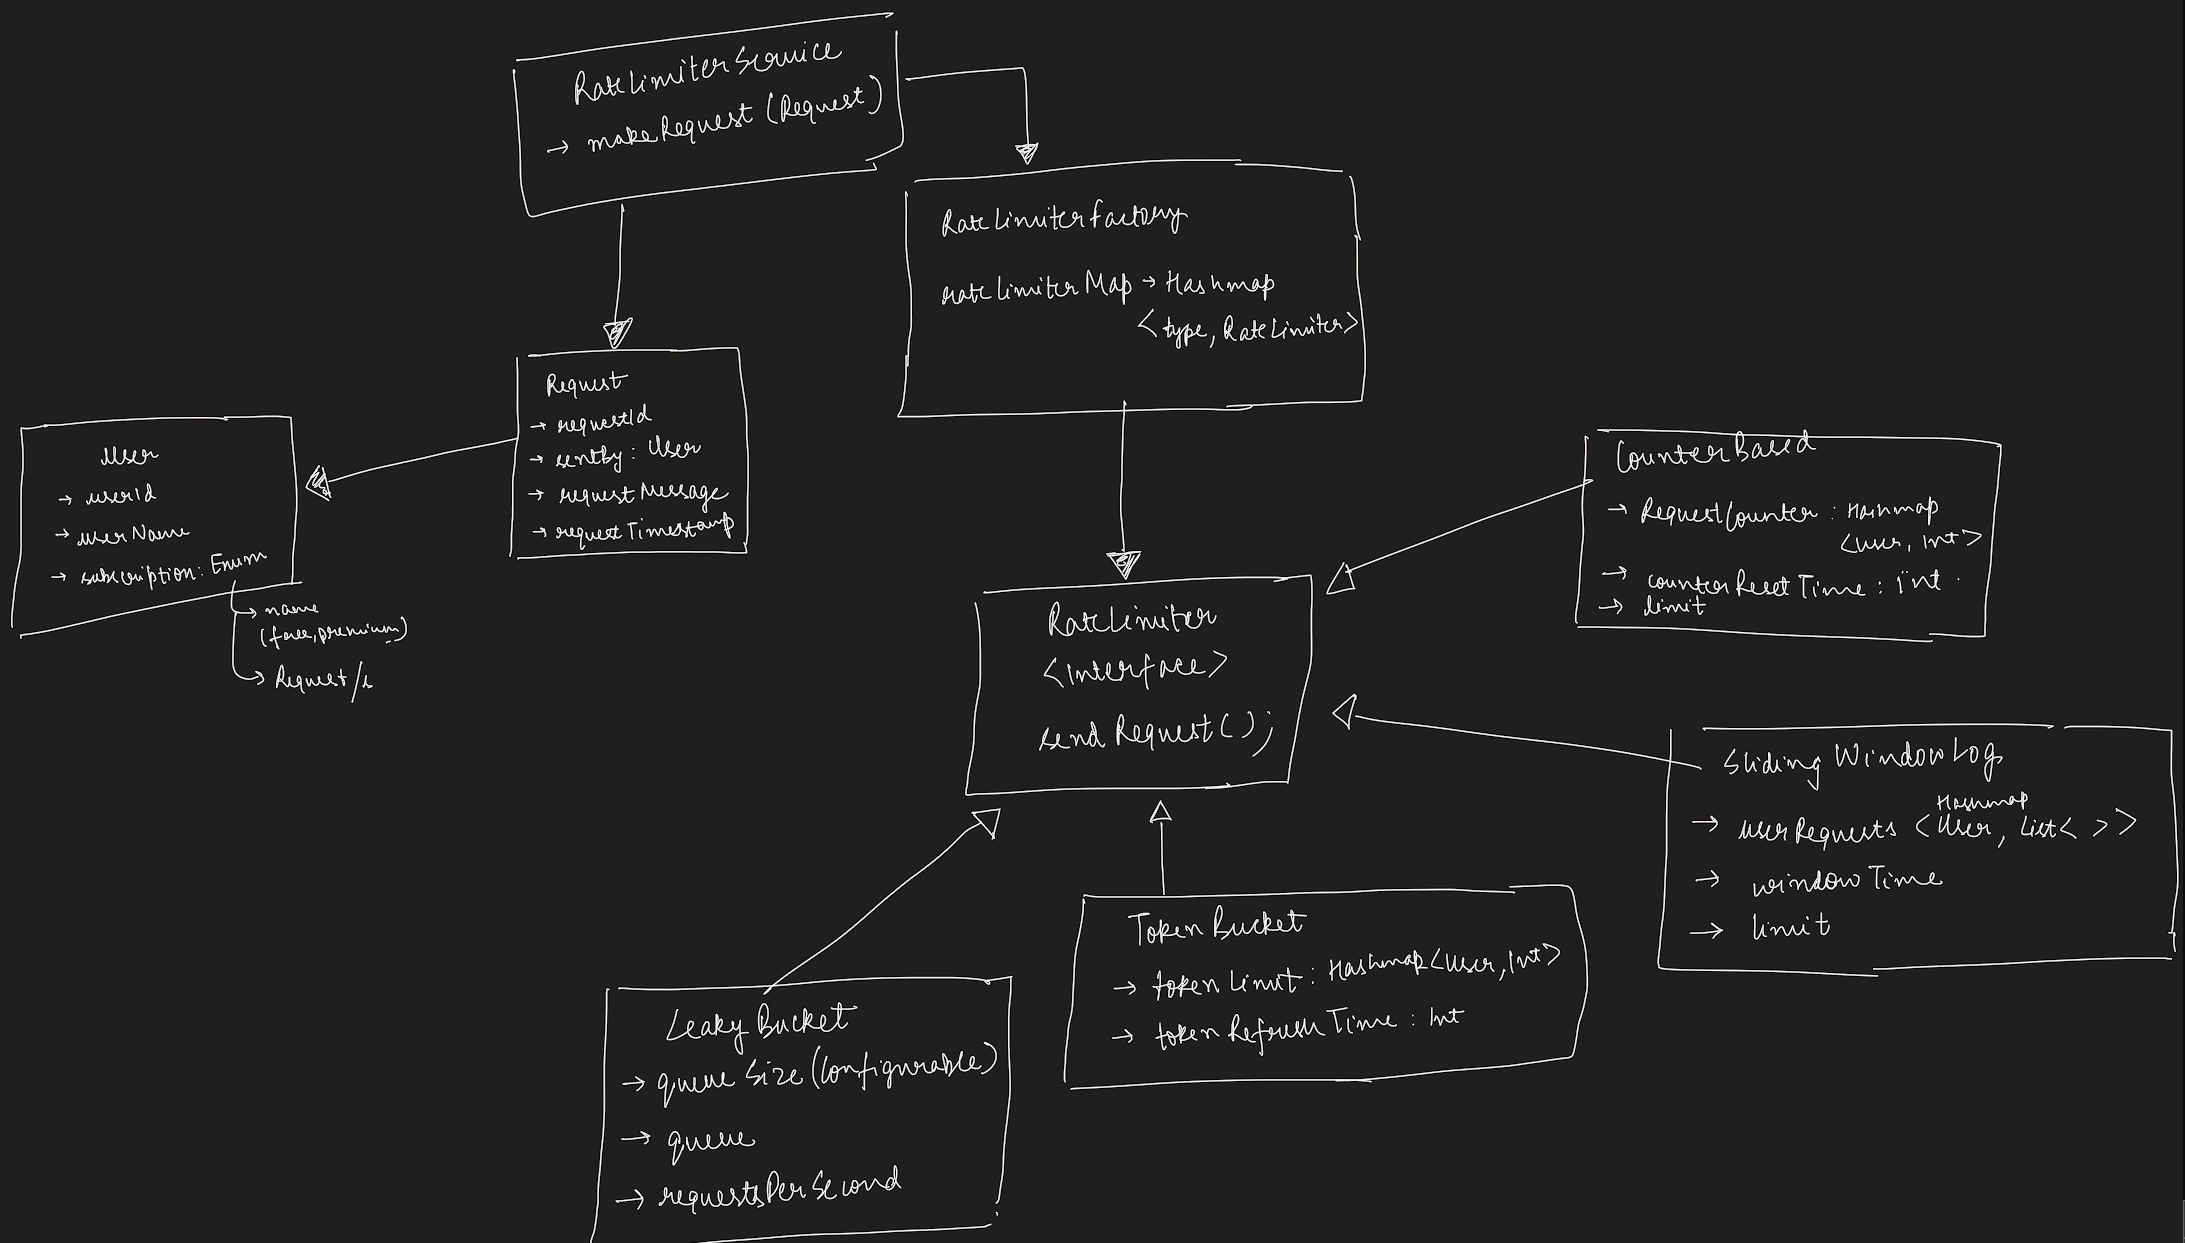 RateLimiterService
→ makeRequest (Request)
RateLimiterFactory
rateLimiterMap → Hashmap
<type, RateLimiter>
Request
→ requestId
→ sentby: User
→ requestMessage
→ requestTimestamp
User
→ userId
→ userName
→ subscription: Enum
→ name
(free, premium)
→ Request/s
CounterBased
→ RequestCounter : Hashmap
<user, Int>
→ counterResetTime : int
→ limit
RateLimiter
<Interface>
sendRequest();
Sliding WindowLog
Hashmap
→ userRequests <User, List< >>
→ windowTime
→ limit
Token Bucket
→ tokenLimit : Hashmap<User, Int>
→ tokenRefreshTime : Int
Leaky Bucket
→ queue Size (Configurable)
→ queue
→ requestsPerSecond